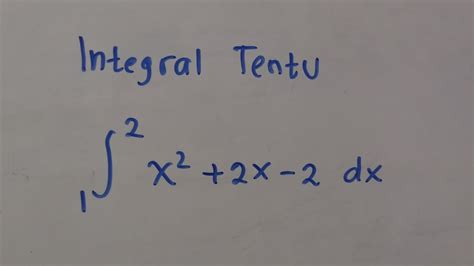 Integral Tentu
∫₁² x² + 2x - 2 dx